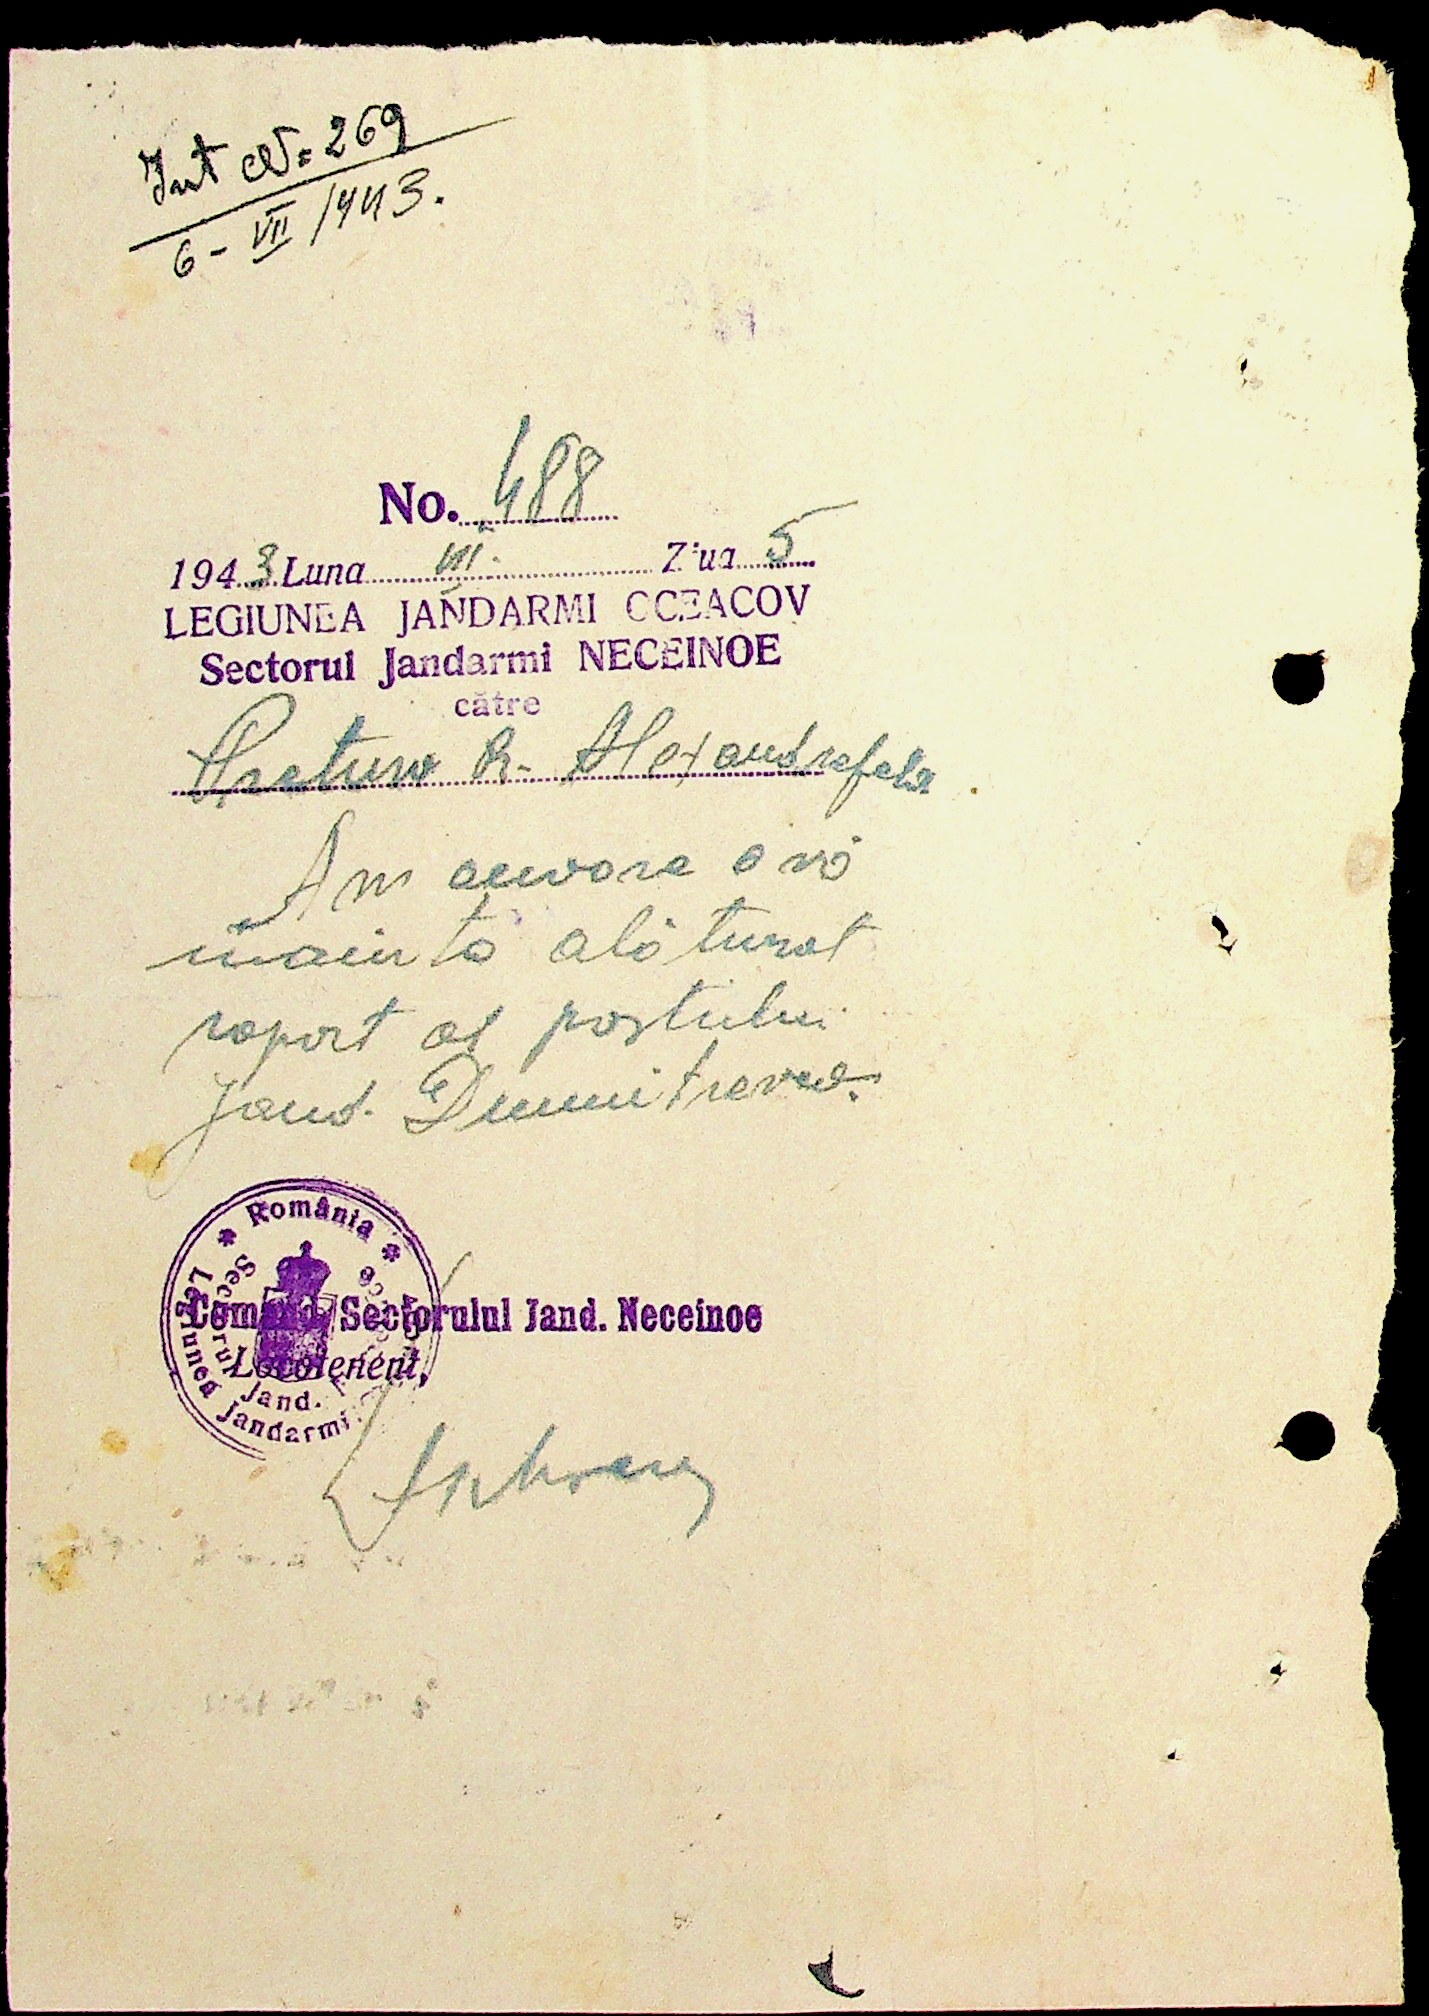 Int No: 269
6 - VII / 943.
No. 488
1943 Luna VII. Ziua 5
LEGIUNEA JANDARMI OCEACOV
Sectorul Jandarmi NECEINOE
către
Pretura R. Alexandrefeld
Am onoare a vă
înainta alăturat
raport al postului
Jand. Dumitrevca.
* România *
Legiunea Jandarmi
Sectorul Jand.
Comand. Sectorului Jand. Neceinoe
Locotenent,